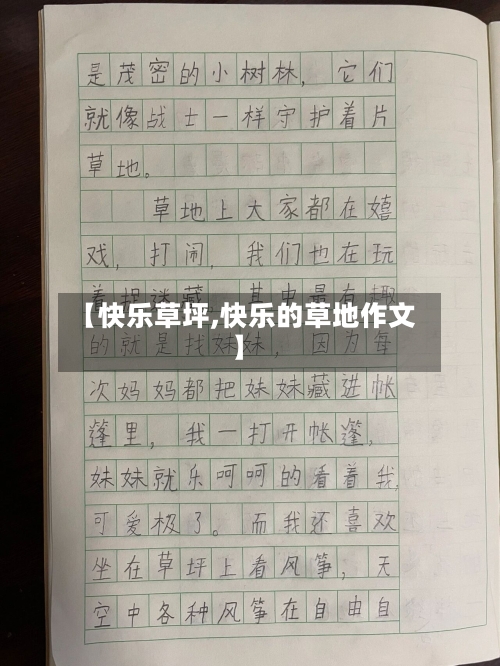 是茂密的小树林，它们
就像战士一样守护着片
草地。
草地上大家都在嬉
戏，打闹，我们也在玩
着捉迷藏，其中最有趣
【快乐草坪,快乐的草地作文
】
的就是找妹妹，因为每
次妈妈都把妹妹藏进帐
篷里，我一打开帐篷，
妹妹就乐呵呵的看着我，
可爱极了。而我还喜欢
坐在草坪上看风筝，天
空中各种风筝在自由自